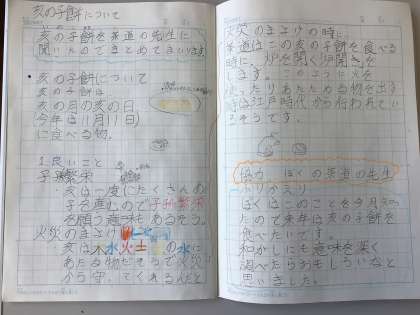 亥の子餅について
亥の子餅を茶道の先生に
聞いたのでまとめてまいります。
亥の子餅について
亥の子餅は
亥の月の亥の日
今年は11月11日)
に食べる物。
1良いこと
子孫繁栄
亥は一度にたくさんの
子を産むので子孫繁栄
を願う意味もあるそう。
火災のまよけ
亥は木火土 水の水に
あたる物だそうで火災
から守ってくれるんだと
火災のまよけの時に、
茶道はこの亥の子餅を食べる
時に、炉を開く炉開きを
します。このように火を
使ったりあたためる物を出す
時は江戸時代から行われてい
るそうです。
協力 ぼくの茶道の先生
ふりかえり
ぼくはこのことを今月
たので来年は亥の子餅を
食べたいです。
和がしにも意味を深く
調べたらおもしろいなと
思いました。